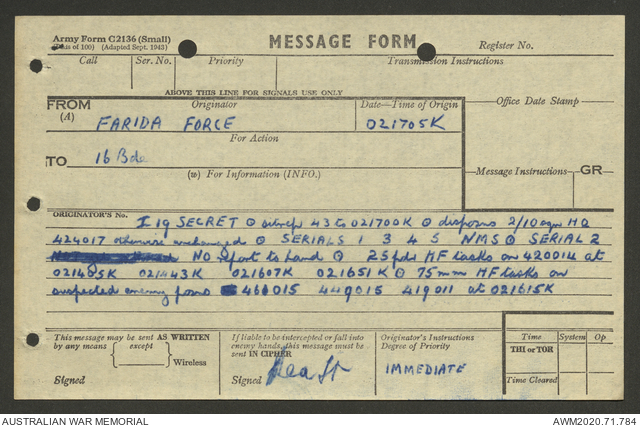 Army Form C2136 (Small)
(Pads of 100) (Adapted Sept. 1943)
MESSAGE FORM
Register No.
Call Ser. No. Priority Transmission Instructions
ABOVE THIS LINE FOR SIGNALS USE ONLY
FROM Originator Date—Time of Origin Office Date Stamp
(A) FARIDA FORCE 021705K
For Action
TO 16 Bde
(W) For Information (INFO.) Message Instructions GR
ORIGINATOR'S No. I 19 SECRET ⊙ sitrep 43 to 021700K ⊙ disposns 2/10 aqn HQ
424017 otherwise unchanged ⊙ SERIALS 1 3 4 5 NMS ⊙ SERIAL 2
NO report to hand ⊙ 25 pdr HF tasks on 420014 at
021405K 021443K 021607K 021651K ⊙ 75mm HF tasks on
suspected enemy posns 461015 449015 419011 at 021615K
This message may be sent AS WRITTEN
by any means except
Wireless
Signed
If liable to be intercepted or fall into
enemy hands, this message must be
sent IN CIPHER
Signed
Originator's Instructions
Degree of Priority
IMMEDIATE
Time System Op
THI or TOR
Time Cleared
AUSTRALIAN WAR MEMORIAL AWM2020.71.784